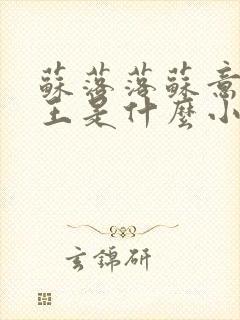 蘇落落蘇意
王是什麼小
玄錦研